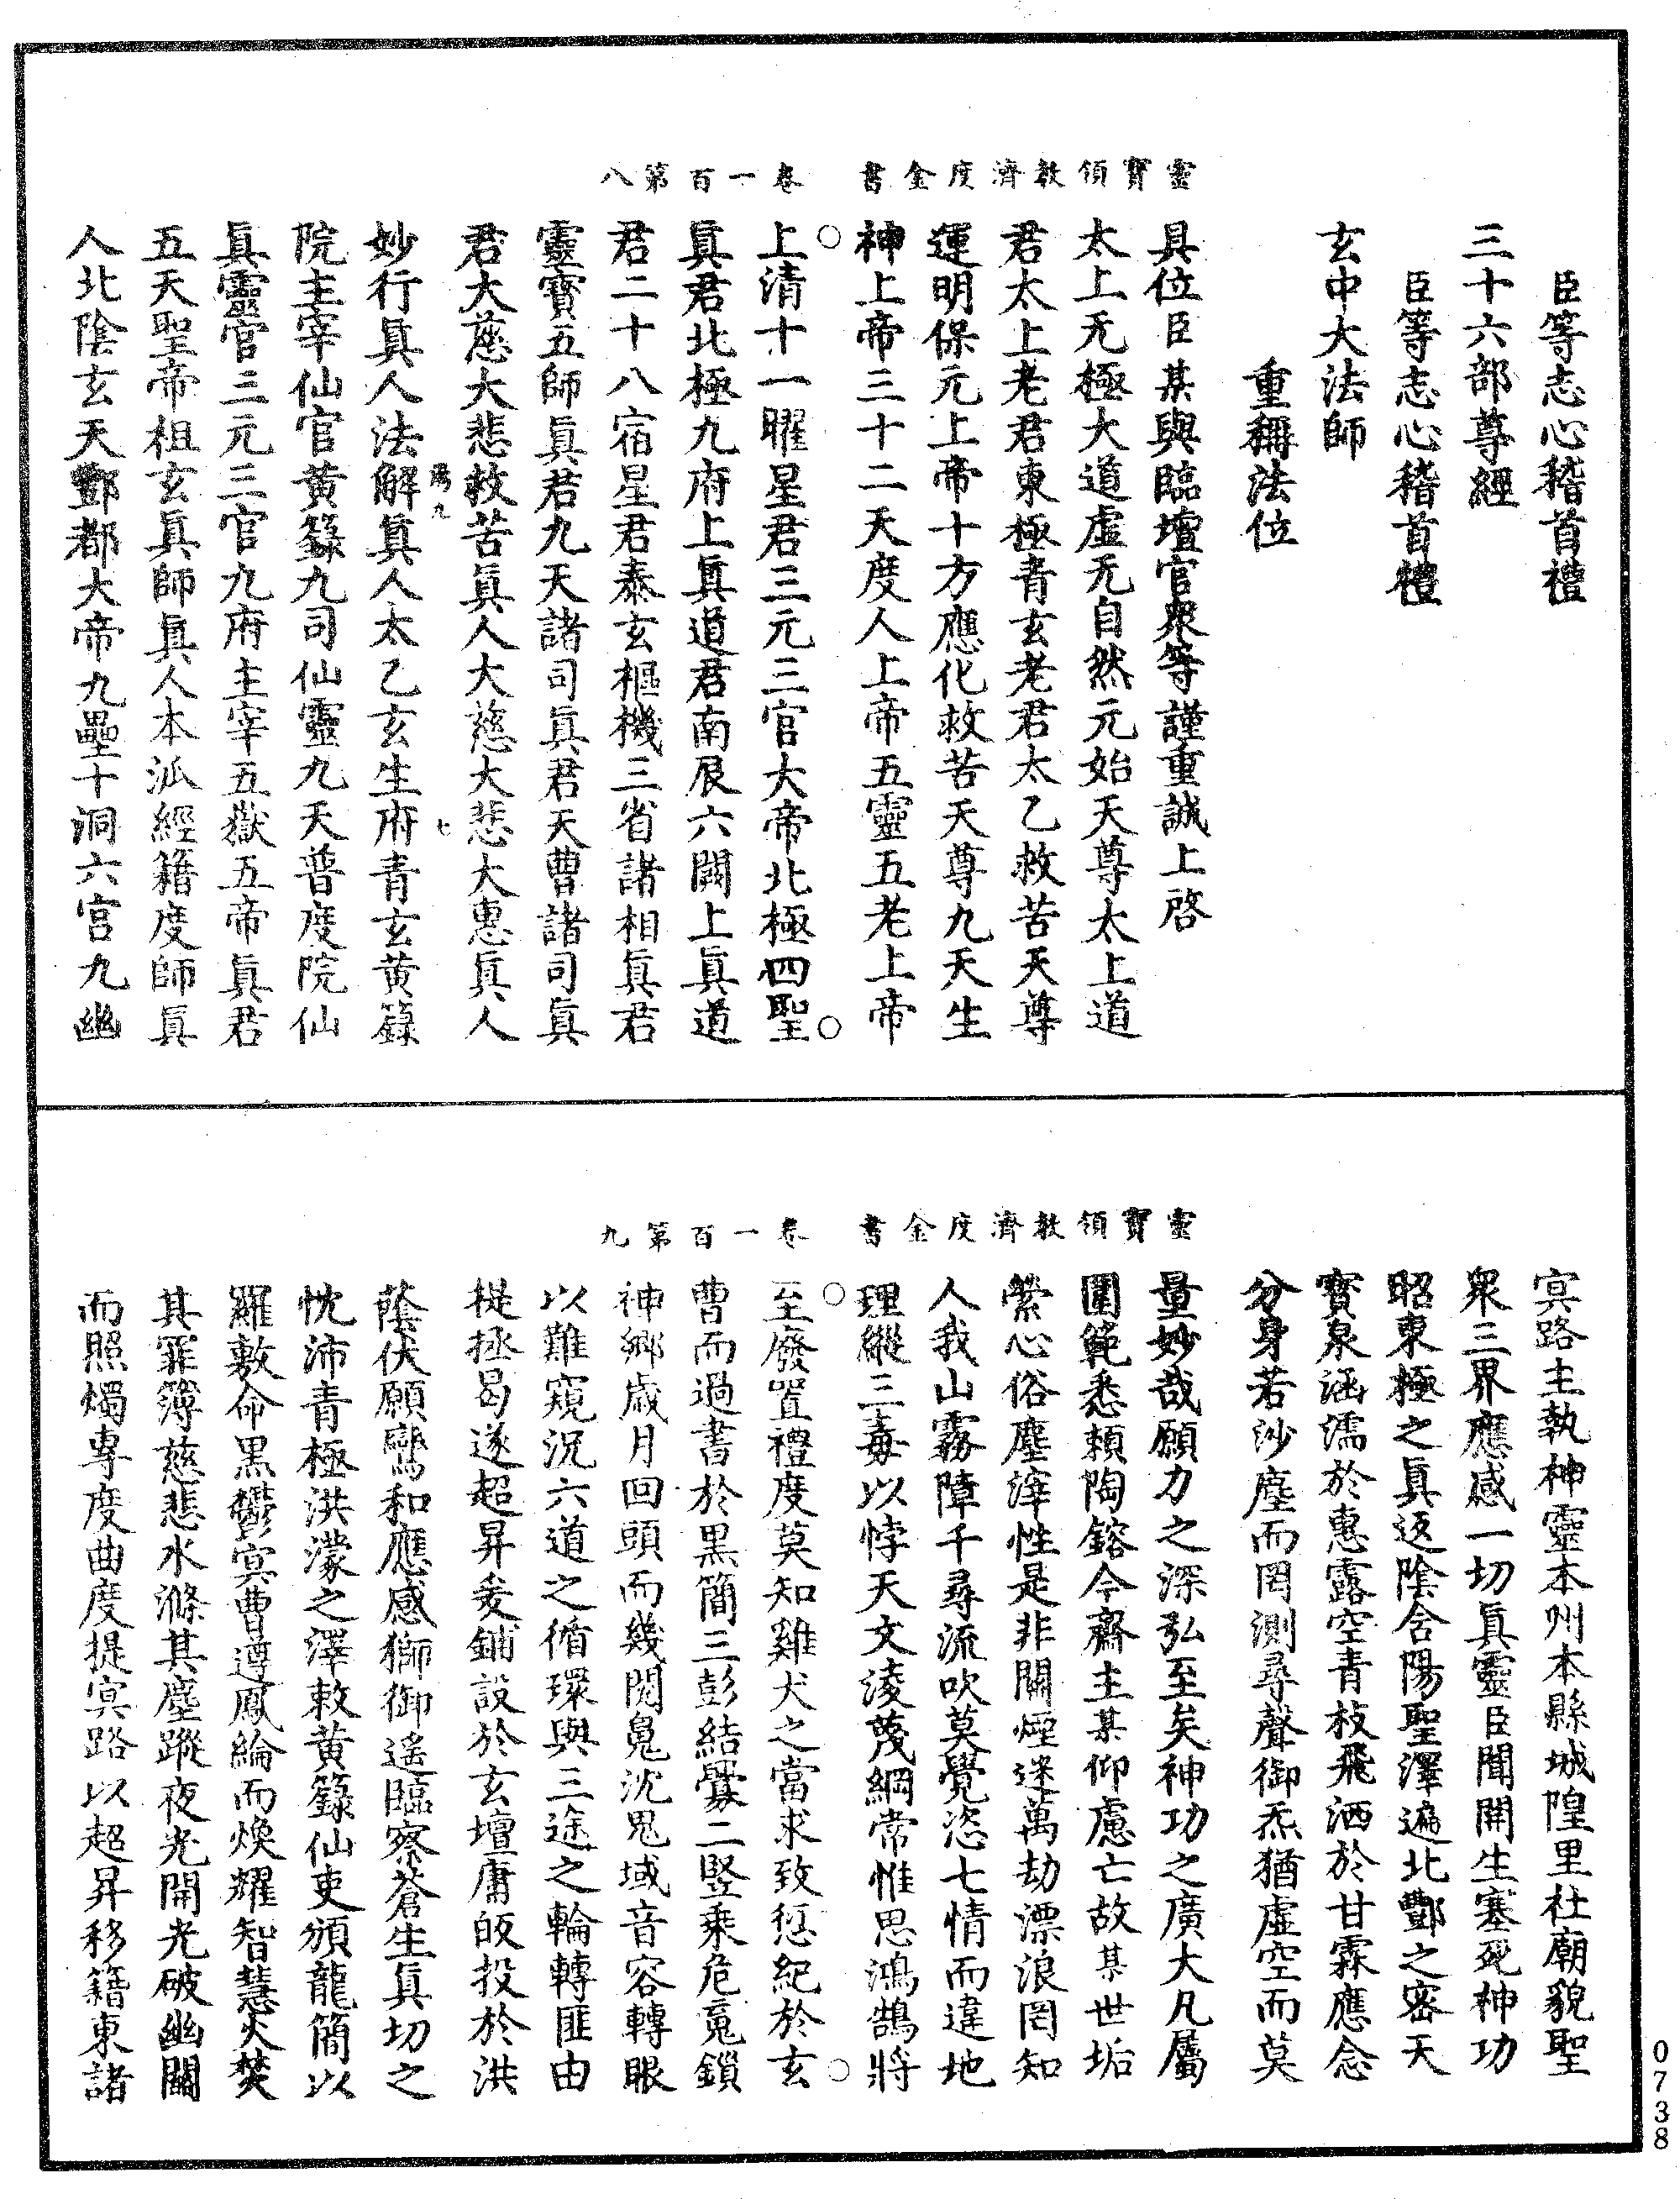 臣等志心稽首禮
三十六部尊經
臣等志心稽首禮
玄中大法師
重稱法位
具位臣某與臨壇官衆等謹重誠上啓
太上无極大道虛无自然元始天尊太上道
君太上老君東極青玄老君太乙救苦天尊
運明保元上帝十方應化救苦天尊九天生
神上帝三十二天度人上帝五靈五老上帝
靈寶領教濟度金書
卷一百第八
上清十一曜星君三元三官大帝北極四聖
眞君北極九府上眞道君南辰六闕上眞道
君二十八宿星君泰玄樞機三省諸相眞君
靈寶五師眞君九天諸司眞君天曹諸司眞
君大慈大悲救苦眞人大慈大悲大惠眞人
九
七
妙行眞人法解眞人太乙玄生府青玄黃籙
院主宰仙官黃籙九司仙靈九天普度院仙
眞靈官三元三官九府主宰五嶽五帝眞君
五天聖帝祖玄眞師眞人本派經籍度師眞
人北陰玄天酆都大帝九壘十洞六宮九幽
冥路主執神靈本州本縣城隍里社廟貌聖
衆三界應感一切眞靈臣聞開生塞死神功
昭東極之眞返陰舍陽聖澤遍北酆之密天
寶泉涵濡於惠露空青枝飛洒於甘霖應念
分身若沙塵而罔測尋聲御炁猶虛空而莫
量妙哉願力之深弘至矣神功之廣大凡屬
圍範悉賴陶鎔今齋主某仰慮亡故某世垢
縈心俗塵滓性是非關煙迷萬劫漂浪罔知
人我山霧障千尋流吹莫覺恣七情而違地
理縱三毒以悖天文淩蔑綱常惟思鴻鵠將
靈寶領教濟度金書
卷一百第九
至廢置禮度莫知雞犬之當求致愆紀於玄
曹而過書於黑簡三彭結釁二豎乘危寃鎖
神鄉歲月回頭而幾閱鬼沈鬼域音容轉眼
以難窺況六道之循環與三途之輪轉匪由
提拯曷遂超昇爰鋪設於玄壇庸皈投於洪
蔭伏願鸞和應感獅御遙臨察蒼生眞切之
忱沛青極洪濛之澤敕黃籙仙吏頒龍簡以
羅敷命黑鬱冥曹遵鳳綸而煥耀智慧火焚
其罪簿慈悲水滌其塵蹤夜光開光破幽關
而照燭專度曲度提冥路以超昇移籍東諸
0738